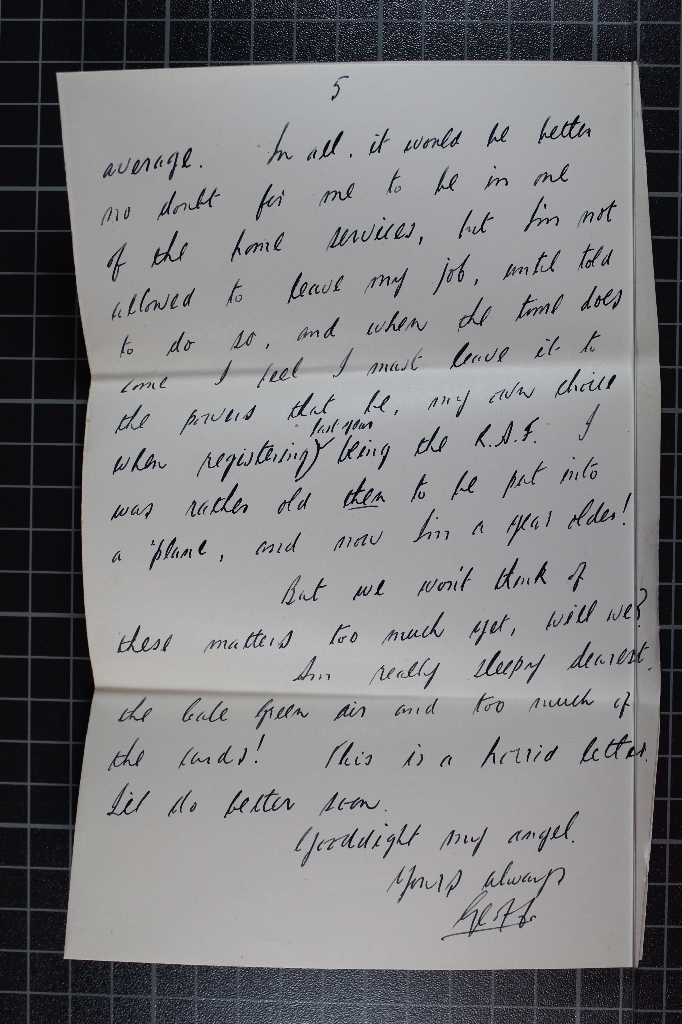 5
average. In all, it would be better
no doubt for me to be in one
of the home services, but I'm not
allowed to leave my job, until told
to do so, and when the time does
come I feel I must leave it to
the powers that be, my own choice
when registering last year being the R.A.F. I
was rather old then to be put into
a 'plane, and now I'm a year older!
But we won't think of
these matters too much yet, will we?
I'm really sleepy dearest,
the Gale Green air and too much of
the cards! This is a horrid letter.
I'll do better soon.
Gooddight my angel.
Yours always
Geoff.